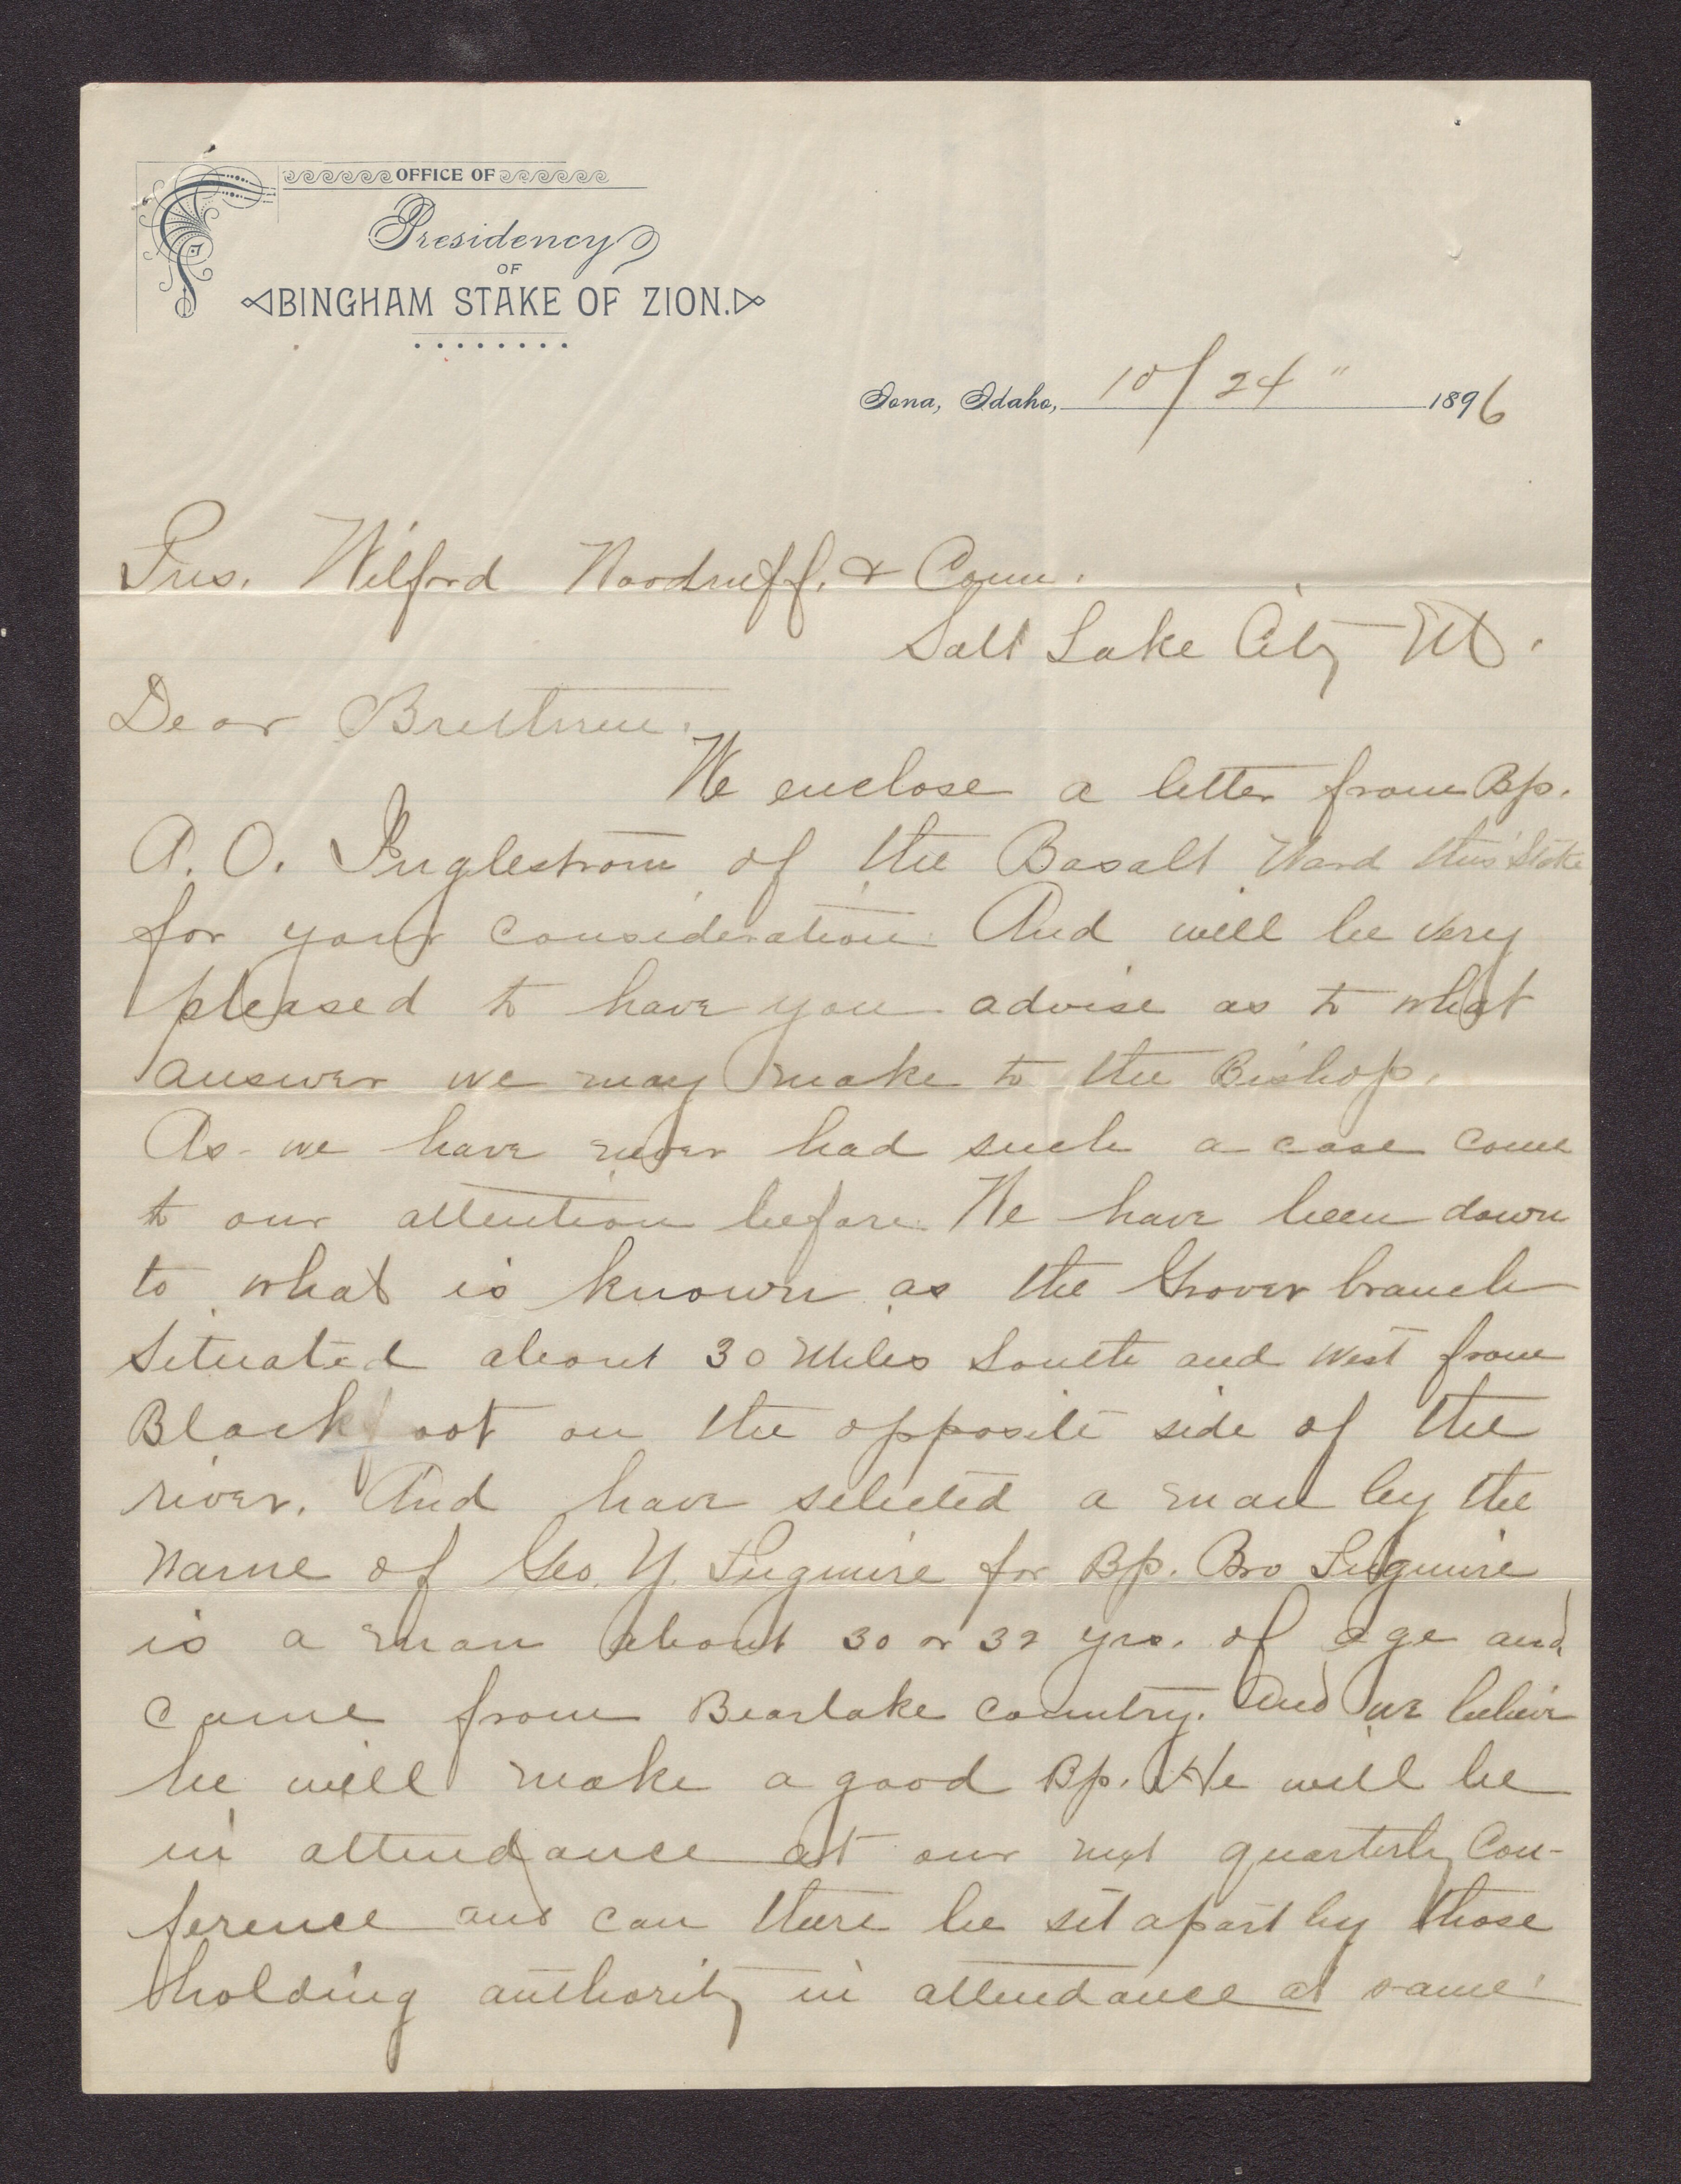 OFFICE OF
Presidency
OF
BINGHAM STAKE OF ZION.
Iona, Idaho, 10/24" 1896
Pres. Wilford Woodruff. & Coun.
Salt Lake City Ut.
Dear Brethren.
We enclose a letter from Bp.
A. O. Inglestrom of the Basalt Ward this Stake
for your consideration. And will be very
pleased to have you advise as to what
answer we may make to the Bishop.
As we have never had such a case come
to our attention before. We have been down
to what is known as the Grover branch
Situated about 30 Miles South and West from
Blackfoot on the opposite side of the
river. And have selected a man by the
Name of Geo. Y. for Bp. Bro
is a man about 30 or 32 yrs. of age and
came from Bearlake country. And we believe
he will make a good Bp. He will be
in attendance at our next quarterly Con-
ference and can there be set apart by those
holding authority in attendance at same.